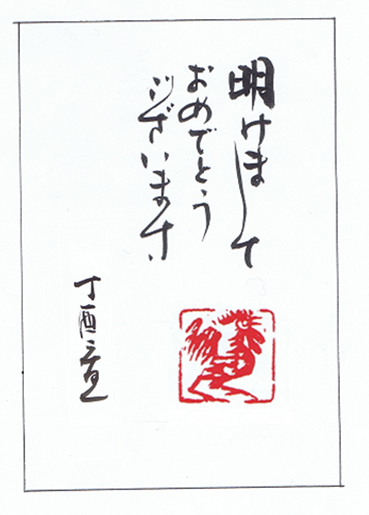 明けまして
おめでとう
ございます
丁酉